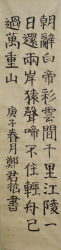 朝辭白帝彩雲間千里江陵一
日還兩岸猿聲啼不住輕舟已
過萬重山
庚子春月鄭君懿書